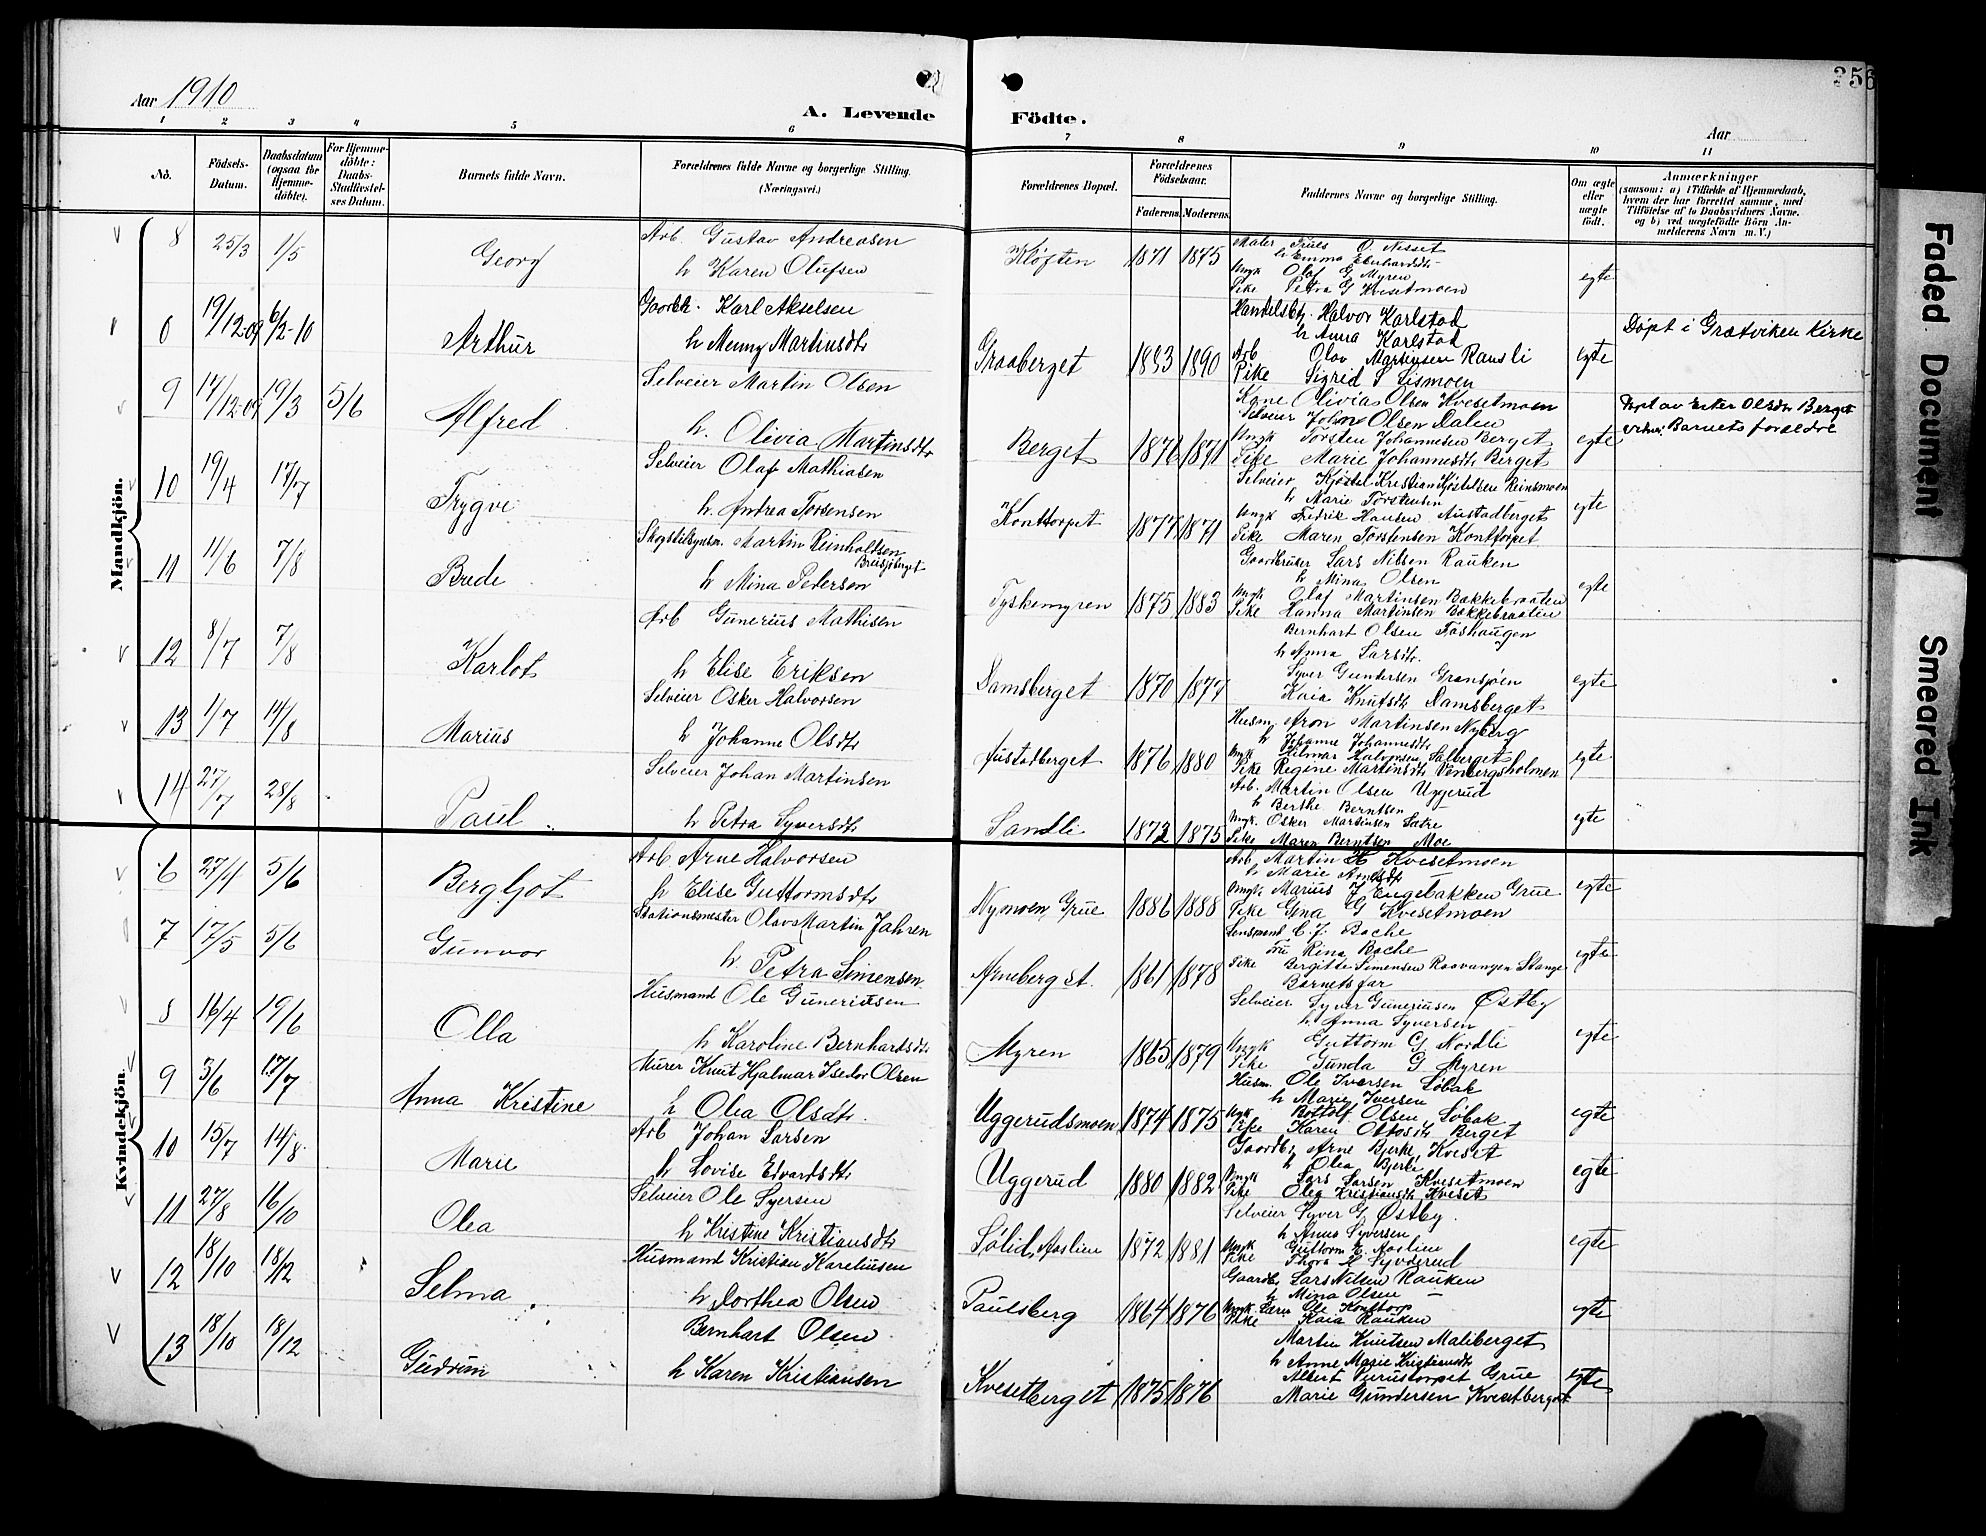 Aar 1910
A. Levende Födte.
356
Aar
1 2 3 4 5 6 7 8 9 10 11
No.
Födsels-Datum.
Daabsdatum (ogsaa for Hjemmedöbte).
For Hjemmedöbte: Daabs-Stadfæstelses Datum.
Barnets fulde Navn.
Forældrenes fulde Navne og borgerlige Stilling. (Næringsvei.)
Forældrenes Bopæl.
Forældrenes Födselsaar.
Faderens. Moderens.
Faddernes Navne og borgerlige Stilling.
Om ægte eller uægte födt.
Anmærkninger
(saasom: a) i Tilfælde af Hjemmedaab, hvem der har forrettet samme, med Tilföielse af to Daabsvidners Navne. og b) ved uægtefödte Börn Anmelderens Navn m. V.)
Mandkjön.
8 25/3 1/5 Georg
Arb. Gustav Andreasen
h Karen Olufsen
Kløften 1871 1875
Maler Truls O. Nisset
h Emma Eberhardsdtr
Ungk Olaf G Myren
Pike Petra G Kvesetmoen
egte
0 19/12-09 6/2-10 Arthur
Gaardb. Karl Akselsen
h Menny Martinsdtr
Graaberget 1883 1890
Handelsb. Halvor Karlstad
h Anna Karlstad
Arb Olav Martinsen Ransli
Pike Sigrid S Lismoen
egte
Døpt i Grætviken Kirke
9 17/12-09 19/3 5/6 Alfred
Selveier Martin Olsen
h. Olivia Martinsdtr
Berget 1876 1871
Kone Olivia Olsen Kvesetmoen
Selveier Johns Olsen Dalen
Ungk Torsten Johannesen Berget
Pike Marie Johannesdtr Berget
egte
Døpt av Ester Olsdtr Berget
vidner: Barnets foreldre
10 19/4 17/7 Trygve
Selveier Olaf Mathiasen
h. Andrea Torsensen
Konttorpet 1877 1871
Selveier Kjøstel Kristian Kjøstelsen Reinsmoen
h Marie Torstensen
Ungk Fredrik Hansen Austadberget
Pike Maren Torstensen Konttorpet
egte
11 11/6 7/8 Brede
Skogstilsynsm. Martin Reinholtsen
Breisjøberget
h Mina Petersen
Tyskemyren 1875 1883
Gaardbruker Lars Nilsen Rauken
h Mina Olsen
Ungk Olaf Martinsen Bakkebraaten
Pike Hanna Martinsen Bakkebraaten
egte
12 8/7 7/8 Karlot
Arb Gunerius Mathisen
h Elise Eriksen
Damsberget 1870 1877
Bernhart Olsen Toshaugen
h Anna Larsdtr.
Syver Gundersen Gransjøen
Kaia Knutsdtr Damsberget
egte
13 1/7 14/8 Marius
Selveier Osker Halvorsen
h Johanne Olsdtr
Austadberget 1876 1880
Husm. Aron Martinsen Nyberg
h Johanne Johannesdtr
Ungk Hilmar Halvorsen Salberget
Pike Regine Martinsdtr Vinbergsholmen
egte
14 27/7 28/8 Paul
Selveier Johan Martinsen
h Petra Syversdtr
Sandli 1872 1875
Arb. Martin Olsen Uggerud
h Berthe Berntsen
Ungk. Osker Martinsen Sætre
Pike Maren Berntsen Moe
egte
Kvindekjön.
6 27/4 5/6 Bergljot
Arb Arne Halvorsen
h Elise Guttormsdtr
Nymoen, Grue 1886 1888
Arb. Martin H Kvesetmoen
h Marie Arnesdtr
Ungk Marius J Engebakken Grue
Pike Gina G Kvesetmoen
egte
7 17/5 5/6 Gunvor
Stationsmester Olav Martin Jahren
h. Petra Simensen
Arneberg st. 1861 1878
Lensmand C. J. Bache
Fru Rena Bache
Pike Bergitte Simensen Raavangen Stange
Barnets far
egte
8 16/4 19/6 Olla
Husmand Ole Guneriusen
h Karoline Bernhardsdtr
Myren 1865 1879
Selveier Syver Guneriusen Østby
h. Anna Syversen
Ungk Guttorm G Nordli
Pike Gunda G Myren
egte
9 3/6 17/7 Anna Kristine
Murer Knut Hjalmar Isedor Olsen
h Olea Olsdtr.
Uggerudsmoen 1874 1875
Husm. Ole IversenLøbak
h Marie Iversen
Ungk Bottolf Olsen Løbak
Pike Karen Ottosdtr Berget
egte
10 15/7 14/8 Marie
Arb Johan Larsen
h Lovise Edvardsdtr
Uggerud 1880 1882
Gaardb. Arne Bjerke, Kveset
h Olea Bjerke
Ungk Lars Larsen Kvesetmoen
Pike Olea Kristiansdtr Kveset
egte
11 27/8 16/10 Olea
Selveier Ole Syersen
h Kristine Kristiansdtr
Sølid, Aaslien 1872 1881
Selveier Syver G. Østby.
h Anna Syversen
Ungk Guttorm E. Aaslien
Pike Thora H Syvderud
egte
12 18/10 18/12 Selma
Husmand Kristian Kareliusen
h Dorthea Olsen
Paulsberg 1864 1876
Gaardb. Lars Nilsen Rauken
h Mina Olsen
Ungk Ole Konttorp
Pike Kaia Rauken
egte
13 18/10 18/12 Gudrun
Bernhart Olsen
h Karen Kristiansen
Kvesetberget 1875 1876
Martin Knutsen Maliberget
h Anne Marie Kristiansdtr
Albert Purustorpet Grue
Marie Gundersen Kvesetberget
egte
Faded Document
Smeared Ink